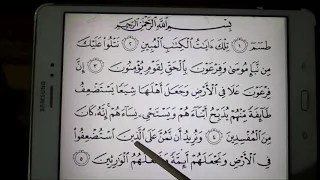 بِسْمِ اللَّهِ الرَّحْمَٰنِ الرَّحِيمِ
طسٓمٓ ١ تِلْكَ ءَايَاتُ الْكِتَابِ الْمُبِينِ ٢ نَتْلُوا عَلَيْكَ
مِن نَّبَإِ مُوسَىٰ وَفِرْعَوْنَ بِالْحَقِّ لِقَوْمٍ يُؤْمِنُونَ ٣ إِنَّ
فِرْعَوْنَ عَلَا فِي الْأَرْضِ وَجَعَلَ أَهْلَهَا شِيَعًا يَسْتَضْعِفُ
طَائِفَةً مِّنْهُمْ يُذَبِّحُ أَبْنَاءَهُمْ وَيَسْتَحْيِ نِسَاءَهُمْ إِنَّهُ كَانَ
مِنَ الْمُفْسِدِينَ ٤ وَنُرِيدُ أَن نَّمُنَّ عَلَى الَّذِينَ اسْتُضْعِفُوا
فِي الْأَرْضِ وَنَجْعَلَهُمْ أَئِمَّةً وَنَجْعَلَهُمُ الْوَارِثِينَ ٥
SAMSUNG